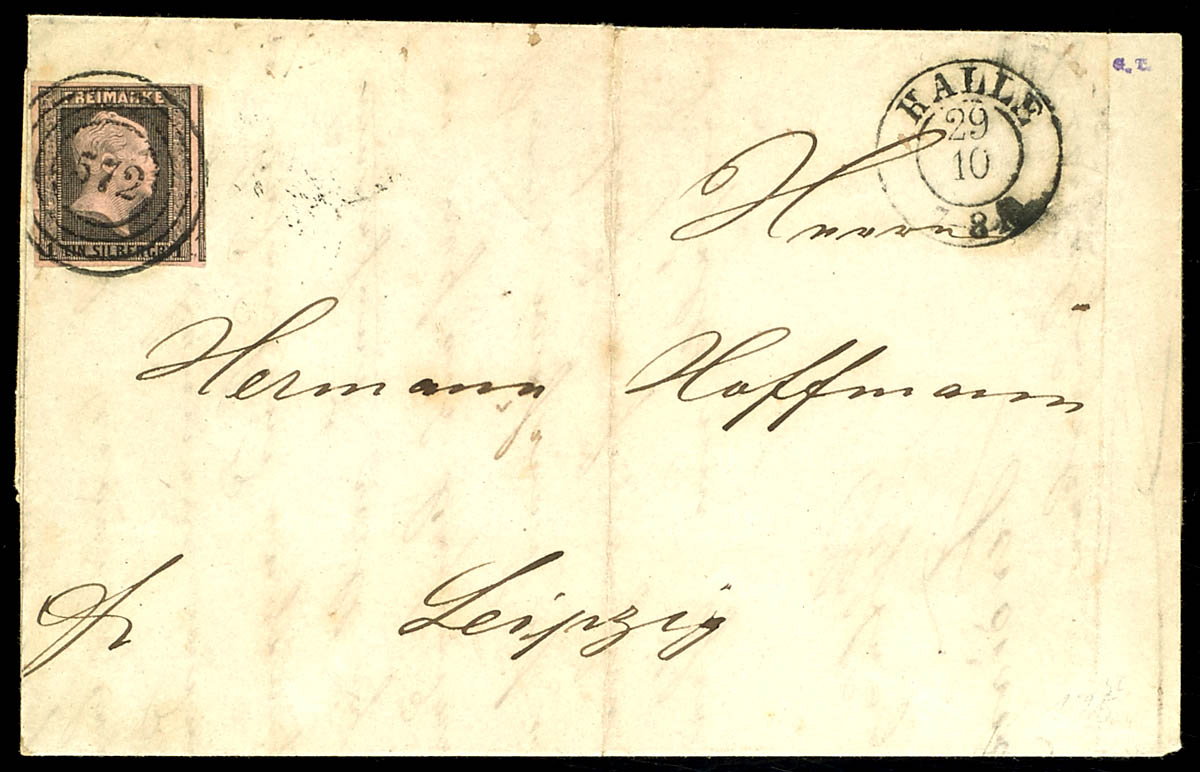 FREIMARKE
572
1 EIN SILBERGR. 1
HALLE
29
10
8
G. T.
Herrn
Hermann Hoffmann
fr Leipzig